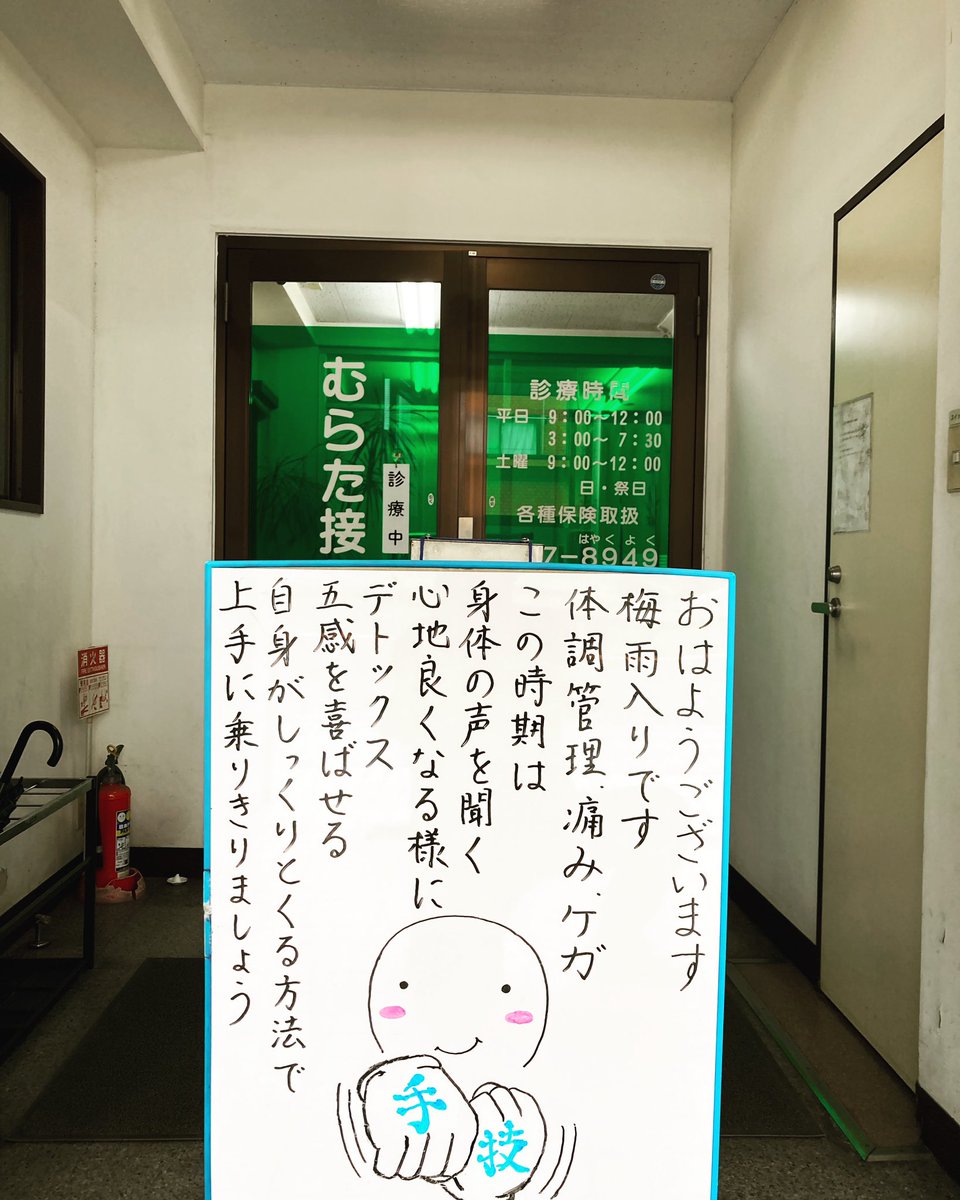 むらた接
診療中
診療時間
平日 9:00〜12:00
3:00〜 7:30
土曜 9:00〜12:00
日・祭日
各種保険取扱
はやくよく
7-8949
消火器
おはようございます
梅雨入りです
体調管理、痛み、ケガ
この時期は
身体の声を聞く
心地良くなる様に
デトックス
五感を喜ばせる
自身がしっくりとくる方法で
上手に乗りきりましょう
手
技